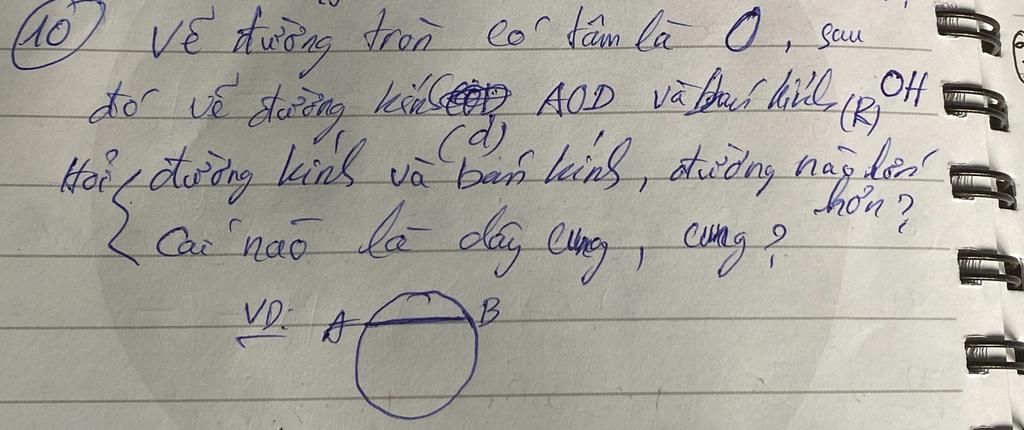 10 Vẽ đường tròn có tâm là O, sau
đó vẽ đường kính AOD và bán kính OH
(d) (R)
Hỏi { đường kính và bán kính, đường nào lớn hơn?
Cái nào là dây cung, cung?
VD: A B